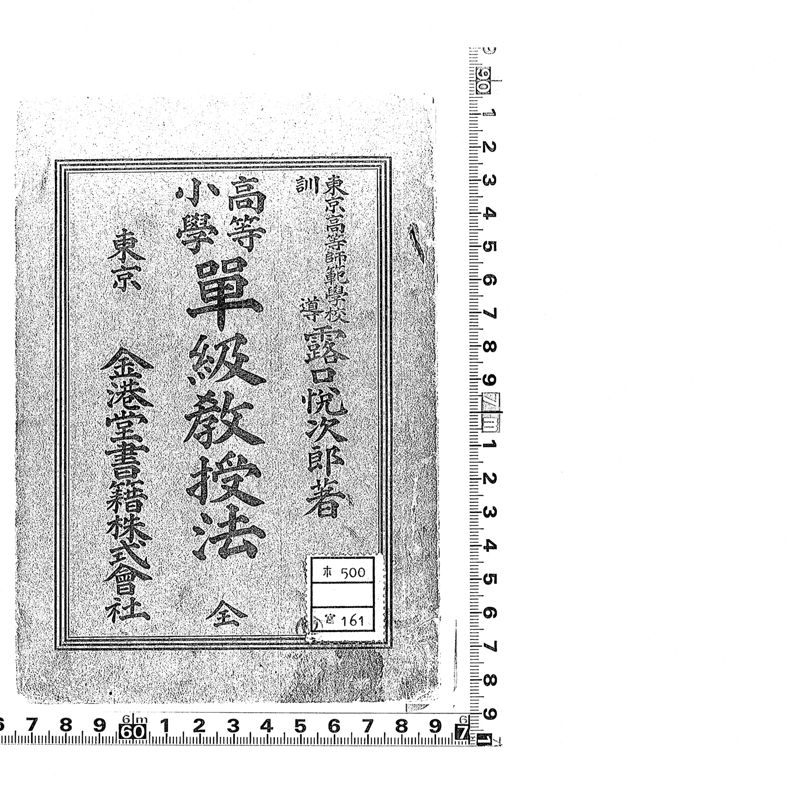 東京高等師範學校
訓導 露口悅次郎著
高等
小學
單級教授法 全
東京 金港堂書籍株式會社
本 500
宮 161
90 1 2 3 4 5 6 7 8 9 1m 1 2 3 4 5 6 7 8 9 1
6 7 8 9 6m 60 1 2 3 4 5 6 7 8 9 7